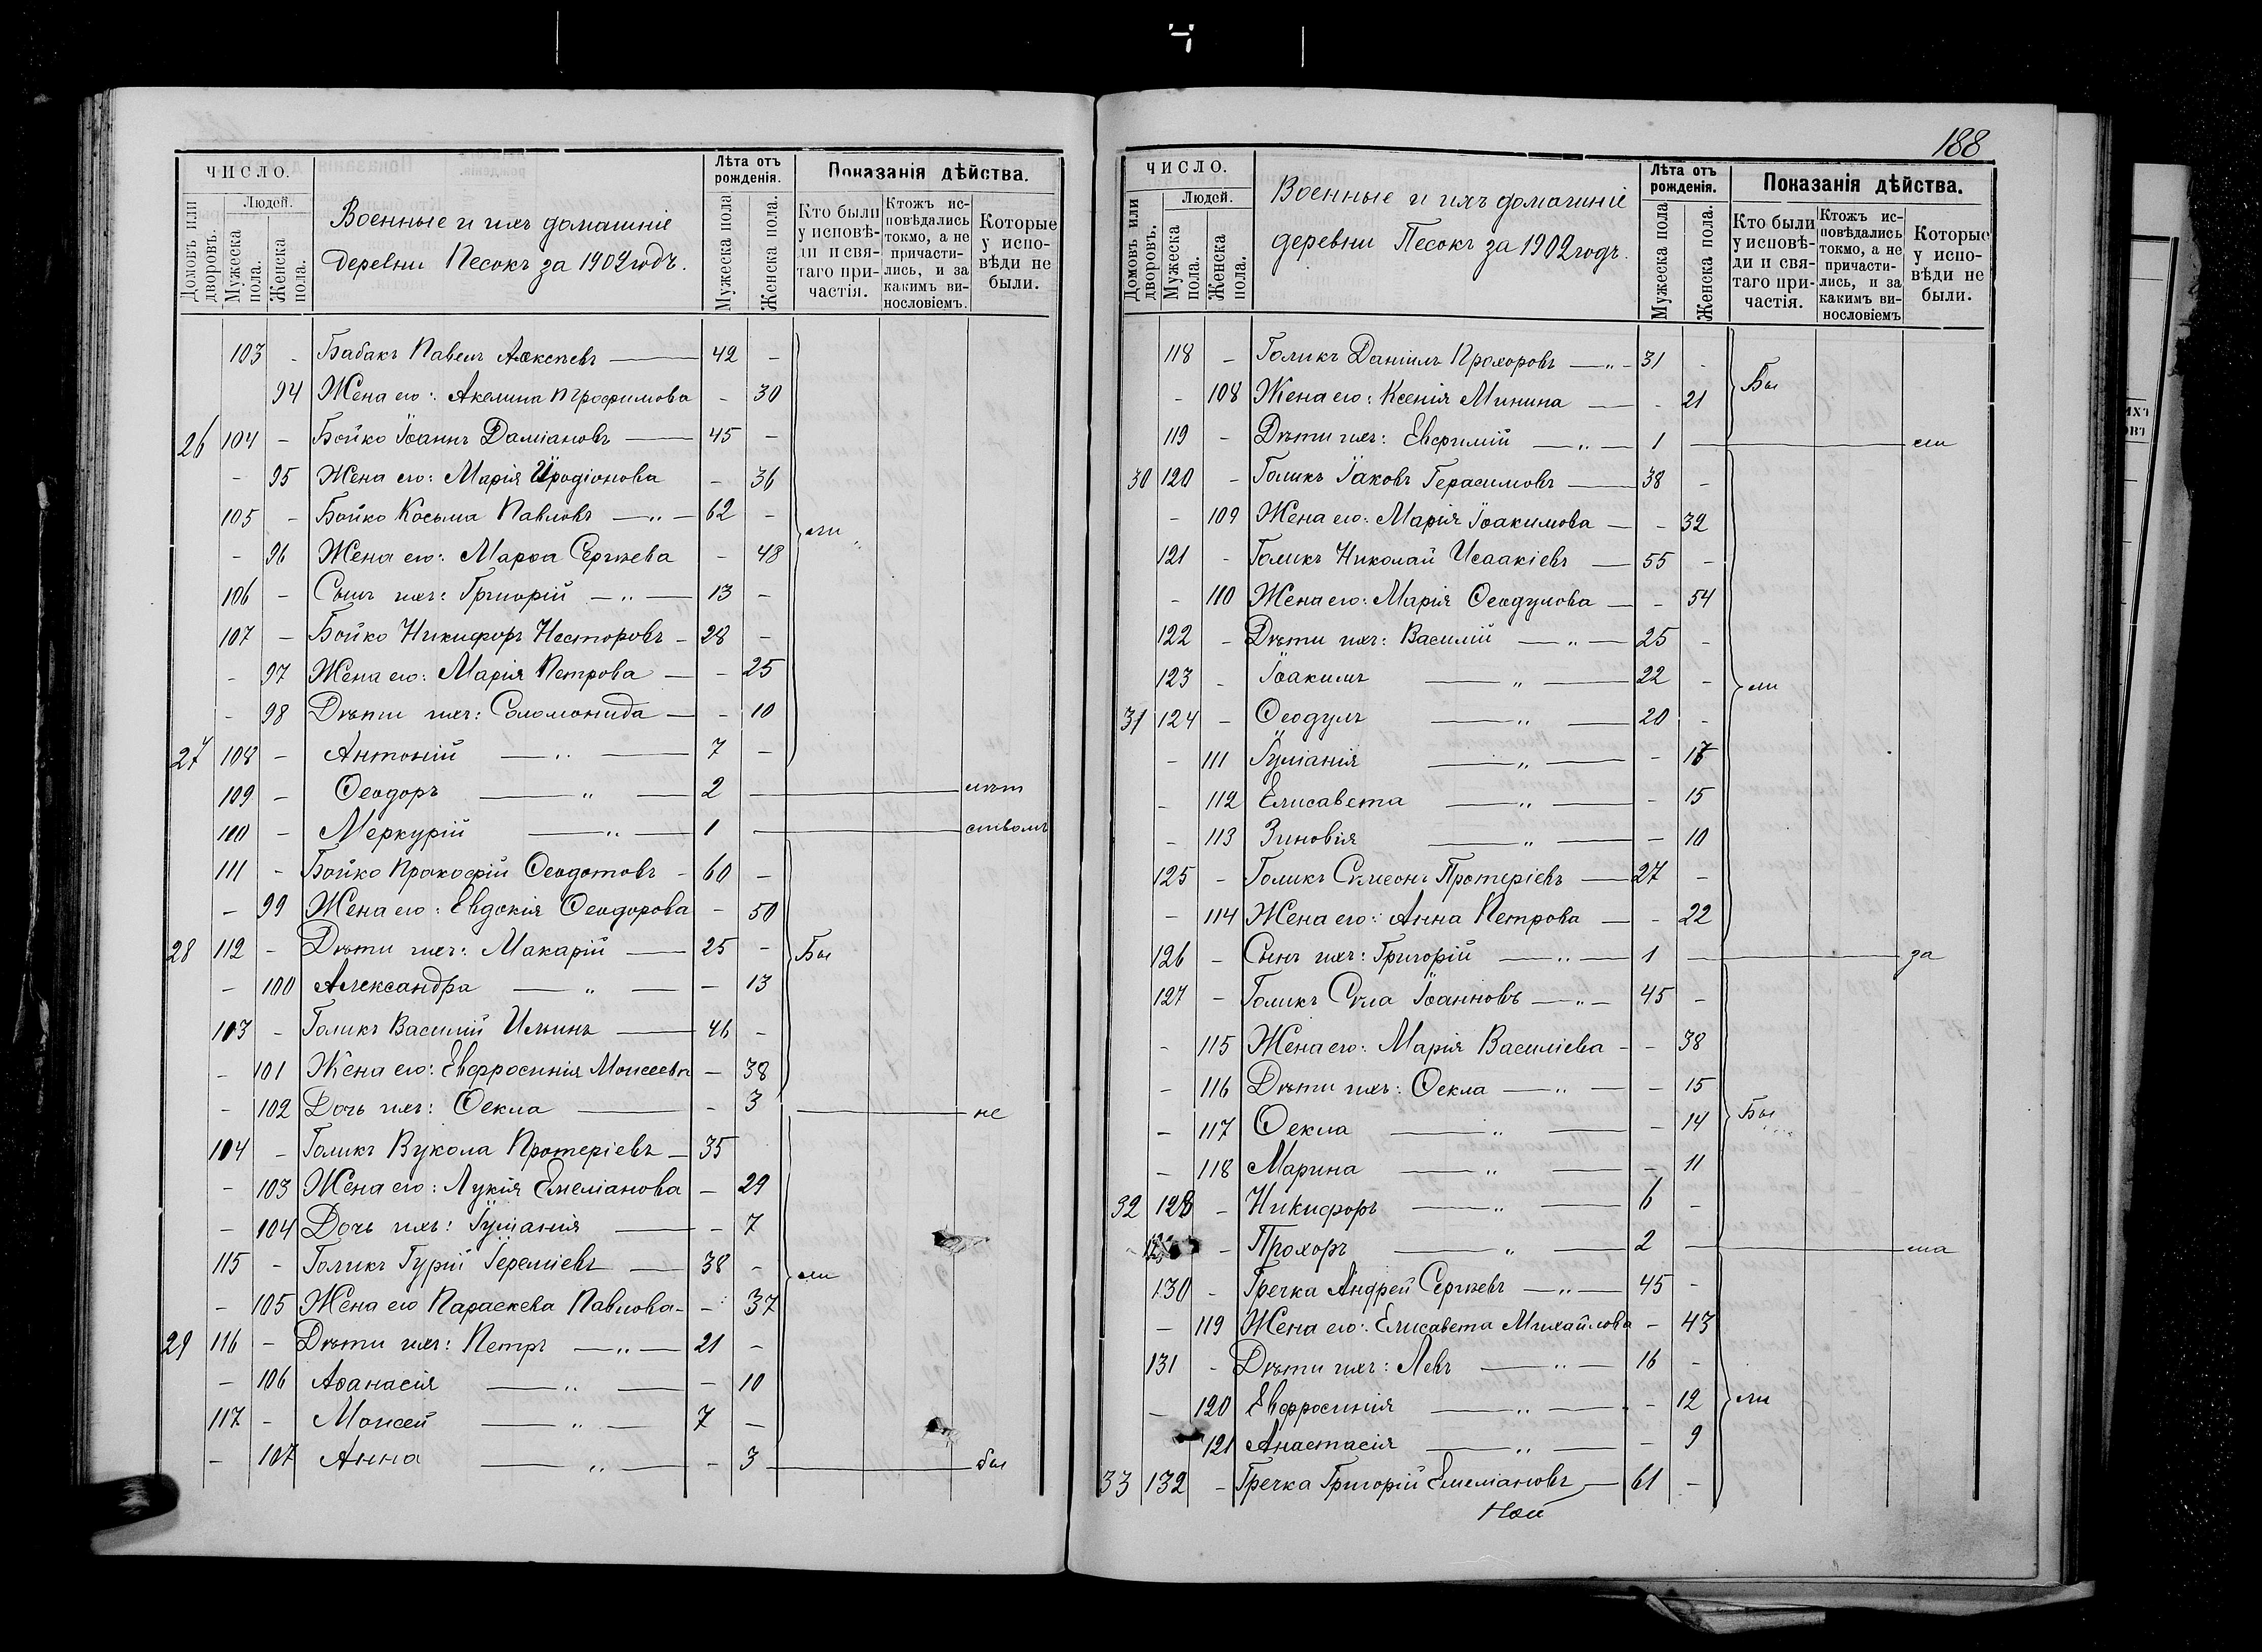 ЧИСЛО.
Людей.
Домовъ или дворовъ.
Мужеска пола.
Женска пола.
Военные и ихъ домашніе
деревни Песокъ за 1902 годъ.
Лѣта отъ рожденія.
Мужеска пола
Женска пола.
Показанія дѣйства.
Кто были у исповѣди и святаго причастія.
Ктожъ исповѣдались токмо, а не причастились, и за какимъ винословіемъ.
Которые у исповѣди не были.
103 - Бабакъ Павелъ Алексѣевъ 42 -
94 Жена его: Акелина Трофимова - 30
26 104 - Бойко Іоаннъ Даміановъ 45 -
- 95 Жена его: Марія Иродіонова - 36
105 - Бойко Косьма Павловъ - " - 62 -
- 96 Жена его: Марѳа Сергѣева - 48 ли
106 - Сынъ ихъ: Григорій - " - 13 -
107 - Бойко Никифоръ Несторовъ - 28 -
- 97 Жена его: Марія Петрова - - 25
- 98 Дѣти ихъ: Соломонида - - 10
27 108 - Антоній - " - 7 -
109 - Ѳеодоръ - " - 2 - лѣт
110 - Меркурій - " - 1 - ствомъ
111 - Бойко Прокофій Ѳеодотовъ - 60 -
- 99 Жена его: Евдокія Ѳеодорова - 50
28 112 - Дѣти ихъ: Макарій - 25 - Бы
- 100 Александра - " - - 13
113 - Голикъ Василій Ильинъ - 46 -
- 101 Жена его: Евфросинія Моисеева - 38
- 102 Дочь ихъ: Ѳекла - - 3 не
114 - Голикъ Вукола Протеріевъ - 35
- 103 Жена его: Лукія Емеліанова - 29
- 104 Дочь ихъ: Іуліанія - - 7
115 - Голикъ Гурій Іереміевъ - 38 - ли
- 105 Жена его Параскева Павлова - - 37
29 116 - Дѣти ихъ: Петръ - " - 21 -
- 106 Аѳанасія - " - - 10
117 - Моисей - " - 7 -
- 107 Анна - " - - 3 бы
188
ЧИСЛО.
Людей.
Домовъ или дворовъ.
Мужеска пола.
Женска пола.
Военные и ихъ домашніе
деревни Песокъ за 1902 годъ.
Лѣта отъ рожденія.
Мужеска пола
Женска пола.
Показанія дѣйства.
Кто были у исповѣди и святаго причастія.
Ктожъ исповѣдались токмо, а не причастились, и за какимъ винословіемъ
Которые у исповѣди не были.
118 - Голикъ Даніилъ Прохоровъ - " - 31 -
- 108 Жена его: Ксенія Минина - - 21 Бы
119 - Дѣти ихъ: Евфимій - " - 1 - ли
30 120 - Голикъ Іаковъ Герасимовъ - 38 -
- 109 Жена его: Марія Іоакимова - - 32
121 - Голикъ Николай Исаакіевъ - 55 -
- 110 Жена его: Марія Ѳеодулова - - 54
122 - Дѣти ихъ: Василій - " - 25 -
123 - Іоакимъ - " - 22 - ли
31 124 - Ѳеодулъ - " - 20 -
- 111 Іуліанія - " - - 17
- 112 Елисавета - " - - 15
- 113 Зиновія - " - - 10
125 - Голикъ Симеонъ Протеріевъ - 27 -
- 114 Жена его: Анна Петрова - - 22
126 - Сынъ ихъ: Григорій - " - 1 - за
127 - Голикъ Сила Іоанновъ - " - 45 -
- 115 Жена его: Марія Василіева - - 38
- 116 Дѣти ихъ: Ѳекла - " - - 15
- 117 Ѳекла - " - - 14 Бы
- 118 Марина - " - - 11
32 128 - Никифоръ - " - 6 -
- Прохоръ - " - 2 - ма
130 - Гречка Андрей Сергѣевъ - " - 45 -
- 119 Жена его: Елисавета Михайлова - 43
131 - Дѣти ихъ: Левъ - " - 16 -
- 120 Евфросинія - " - - 12 ли
121 Анастасія - " - - 9
33 132 - Гречка Григорій Емеліановъ - 61 -